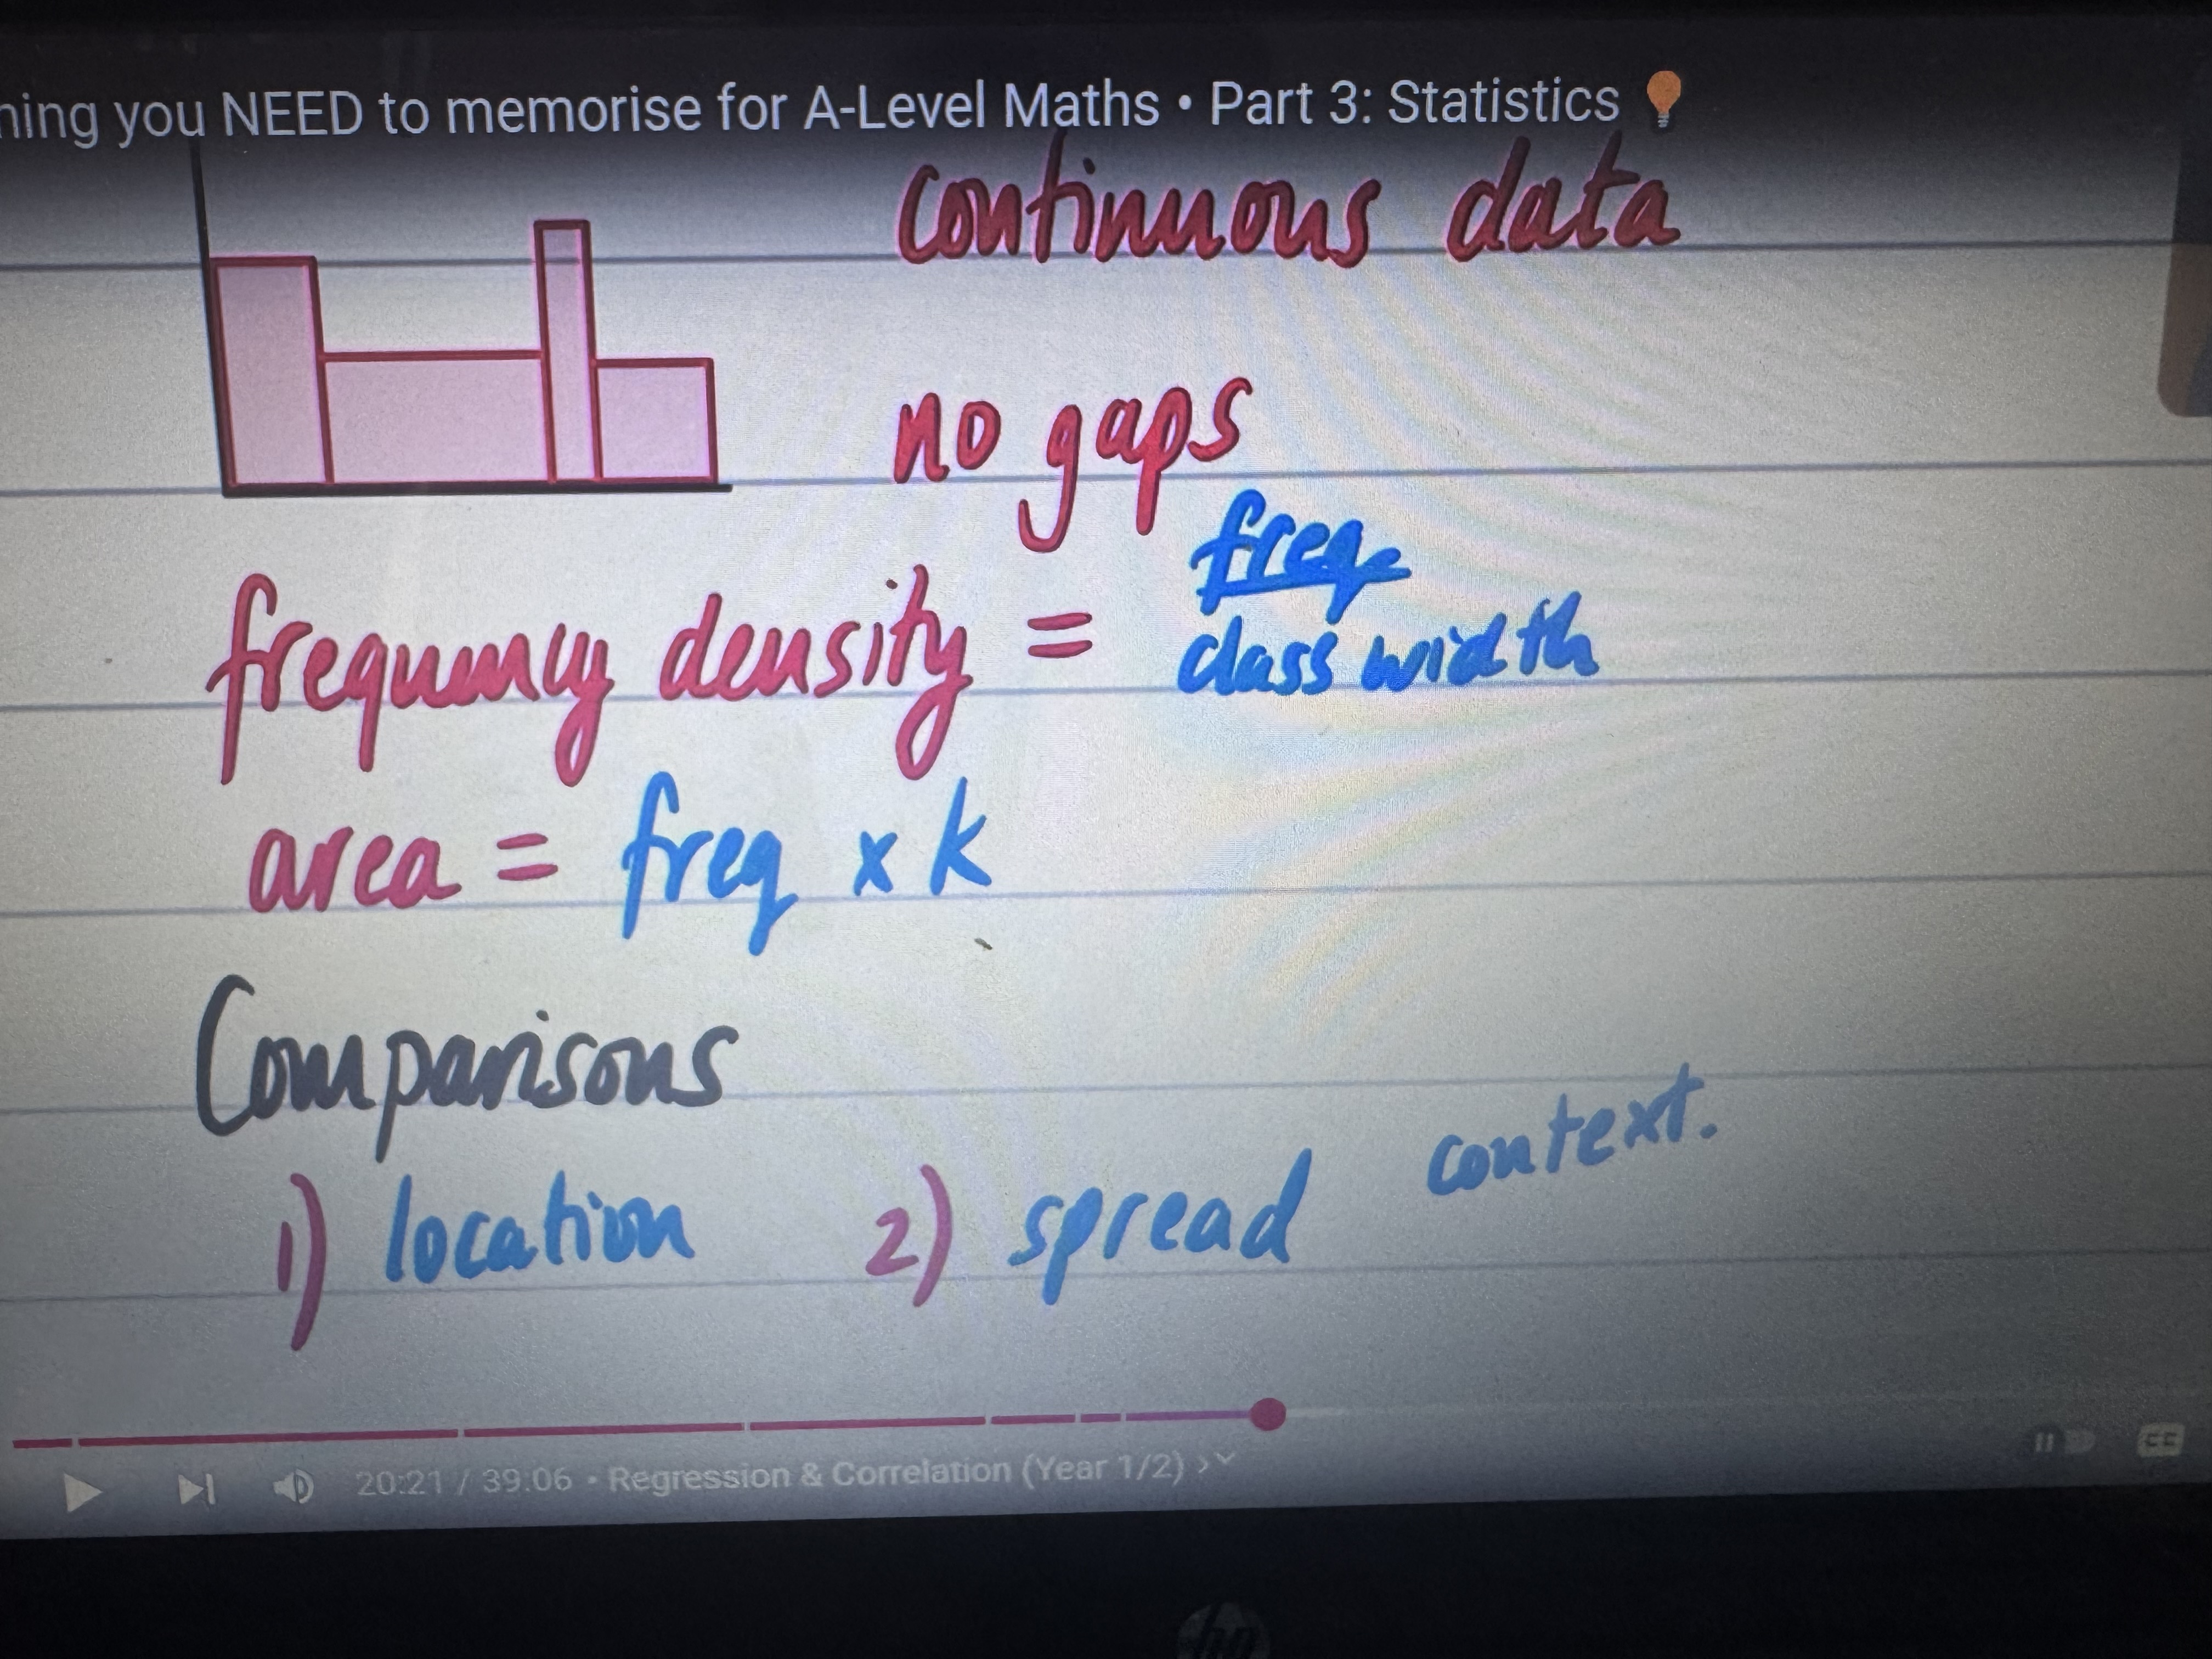 ning you NEED to memorise for A-Level Maths • Part 3: Statistics 💡
continuous data
no gaps
frequency density = freq
class width
area = freq x k
Comparisons
1) location 2) spread context.
20:21 / 39:06 • Regression & Correlation (Year 1/2) >
CC
hp